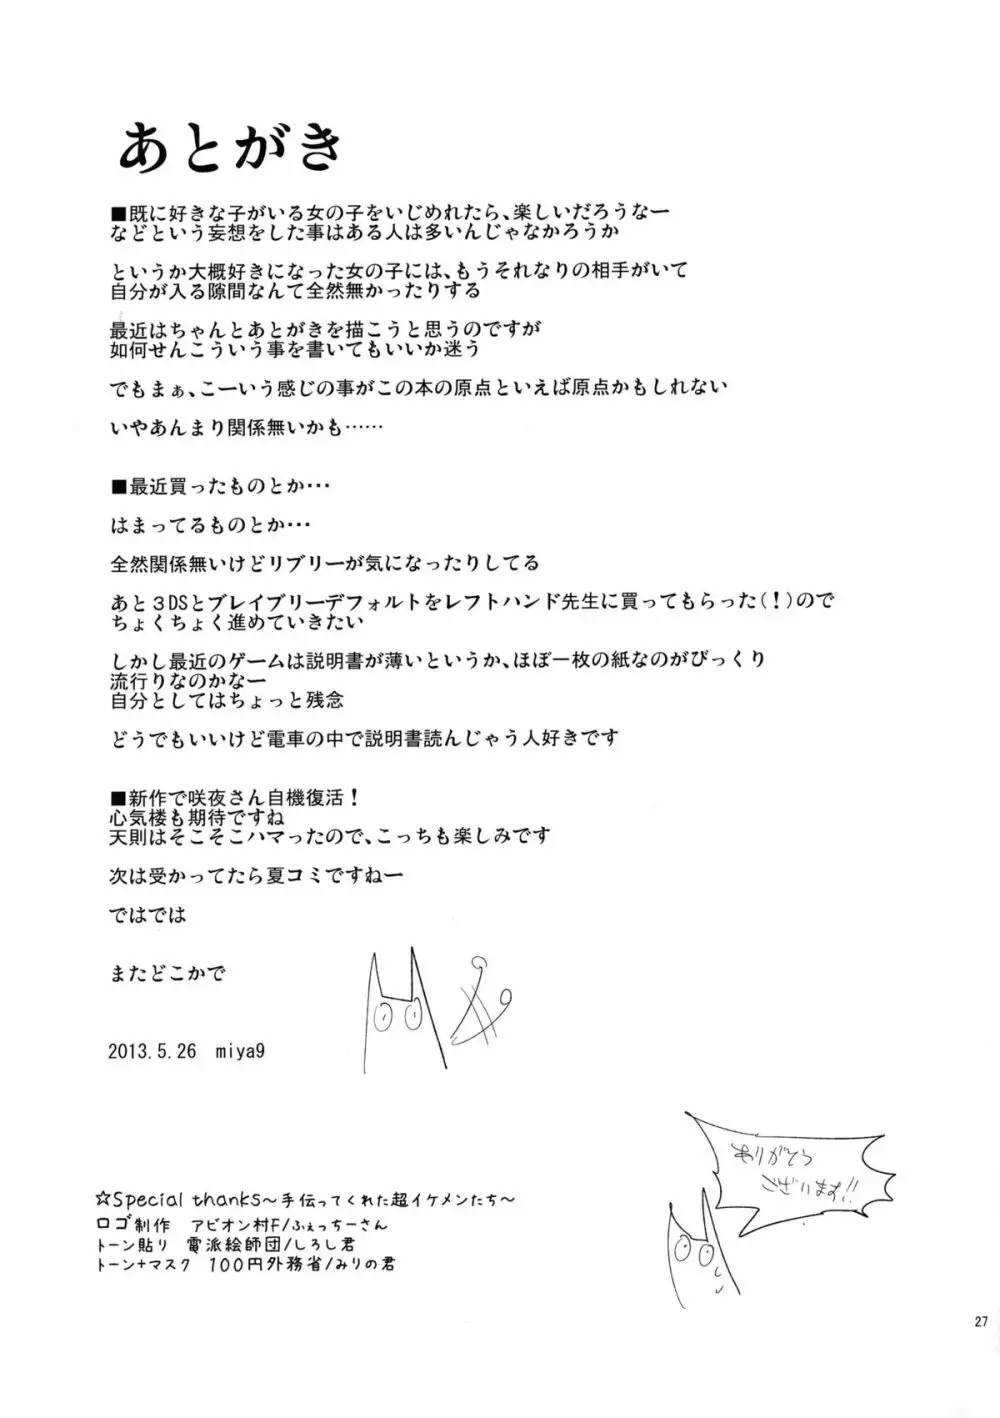 あとがき
■既に好きな子がいる女の子をいじめれたら、楽しいだろうなー
などという妄想をした事はある人は多いんじゃなかろうか
というか大概好きになった女の子には、もうそれなりの相手がいて
自分が入る隙間なんて全然無かったりする
最近はちゃんとあとがきを描こうと思うのですが
如何せんこういう事を書いてもいいか迷う
でもまぁ、こーいう感じの事がこの本の原点といえば原点かもしれない
いやあんまり関係無いかも……
■最近買ったものとか・・・
はまってるものとか・・・
全然関係無いけどリブリーが気になったりしてる
あと３DSとブレイブリーデフォルトをレフトハンド先生に買ってもらった(！)ので
ちょくちょく進めていきたい
しかし最近のゲームは説明書が薄いというか、ほぼ一枚の紙なのがびっくり
流行りなのかなー
自分としてはちょっと残念
どうでもいいけど電車の中で説明書読んじゃう人好きです
■新作で咲夜さん自機復活！
心気楼も期待ですね
天則はそこそこハマったので、こっちも楽しみです
次は受かってたら夏コミですねー
ではでは
またどこかで
2013.5.26 miya9
ありがとう
ございます!!
☆Special thanks～手伝ってくれた超イケメンたち～
ロゴ制作 アビオン村F/ふぇっちーさん
トーン貼り 電派絵師団/しろし君
トーン+マスク 100円外務省/みりの君
27